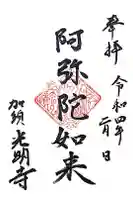 奉拝
令和四年
二月
日
阿弥陀如来
加須
光明寺